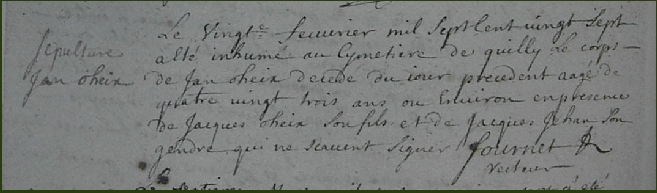 Le vingt.e feuvrier mil sept Cent vingt sept
Sepulture
a esté inhumé au Cymetiere de quilly Le corps
Jan oheix
de Jan oheix decede du iour precedent aagé de
quatre vingt trois ans ou Environ en presence
de Jacques oheix son fils et de Jacques Jehan son
gendre qui ne scauent signer fournet
recteur
a été